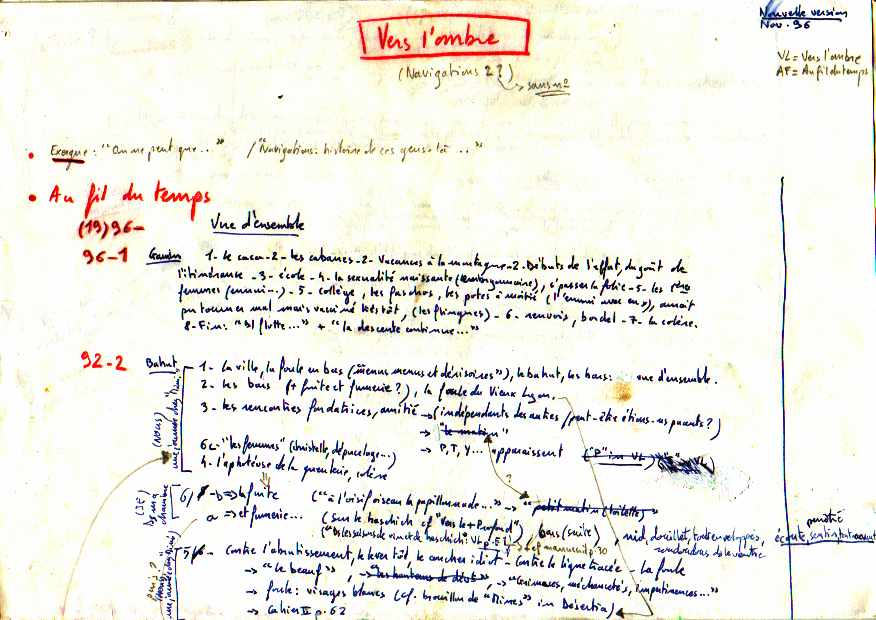 Nouvelle version
Nov. 96
Vers l'ombre
VL = Vers l'ombre
AF = Au fil du temps
(Navigations 2 ?)
→ sans nº
• Exergue : "On ne peut que..." / "Navigations : histoire de ces gens-là ..."
• Au fil du temps
(19)96-
Vue d'ensemble
96-1 Gamin 1- Le caca - 2 - Les cabanes - 2 - Vacances à la montagne - 2. Débuts de l'effort, du goût de
l'itinérance - 3 - école - 4 - la sexualité naissante ( ), - 5 - les
femmes (ennui...) - 5 - collège, les fachos, les potes à moitié (l'ennui avec eux), aurait
pu tourner mal mais vacciné tôt, (les flingues) - 6 - renvois, bordel - 7 - la colère.
8 - Fin : "Il flotte..." + "la descente continue..."
92-2 Bahut 1- La ville, la foule en bas ("menus menus et dérisoires"), le bahut, les bars : vue d'ensemble.
2- Les bars (+ fuite et fumerie ?), la foule du Vieux Lyon.
3- Les rencontres fondatrices, amitié → (indépendants des autres / peut-être étions-ns puants ?)
→ "le matin"
6c- "les femmes" (Christelle, dépucelage...) → P, T, Y... apparaissent ("P" in VL)
4. l'apothéose de la gueulerie, colère
(NOUS)
une journée chez Mimi
(JE)
De ma chambre
6/ - b ⇒ la fuite ("à l'oisif oiseau la papillonnade..." → "petit matin (toilette)"
a ⇒ et fumerie... (Sur le haschich cf "Vers le + Profond") , bars (suite), nid, douillet, enveloppes,
VL p. E1) → cf manuscrit p. 30
écoute,
5/6 - Contre l'abrutissement, le lever tôt, le coucher idiot - contre la ligne tracée - la foule
→ "le beauf" , → , → "Grimaces, méchancetés, impertinences..."
→ foule : visages blancs (cf. brouillon de "Mimes" in Desertia)
→ Cahier II p. 62